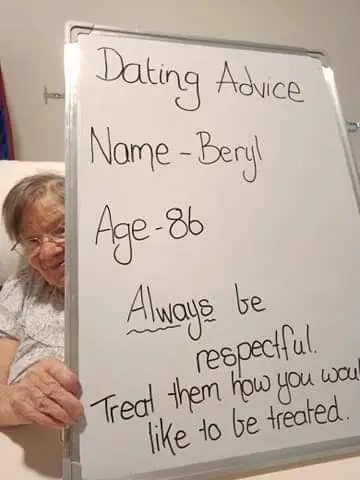 Dating Advice
Name - Beryl
Age - 86
Always be
respectful.
Treat them how you
like to be treated.